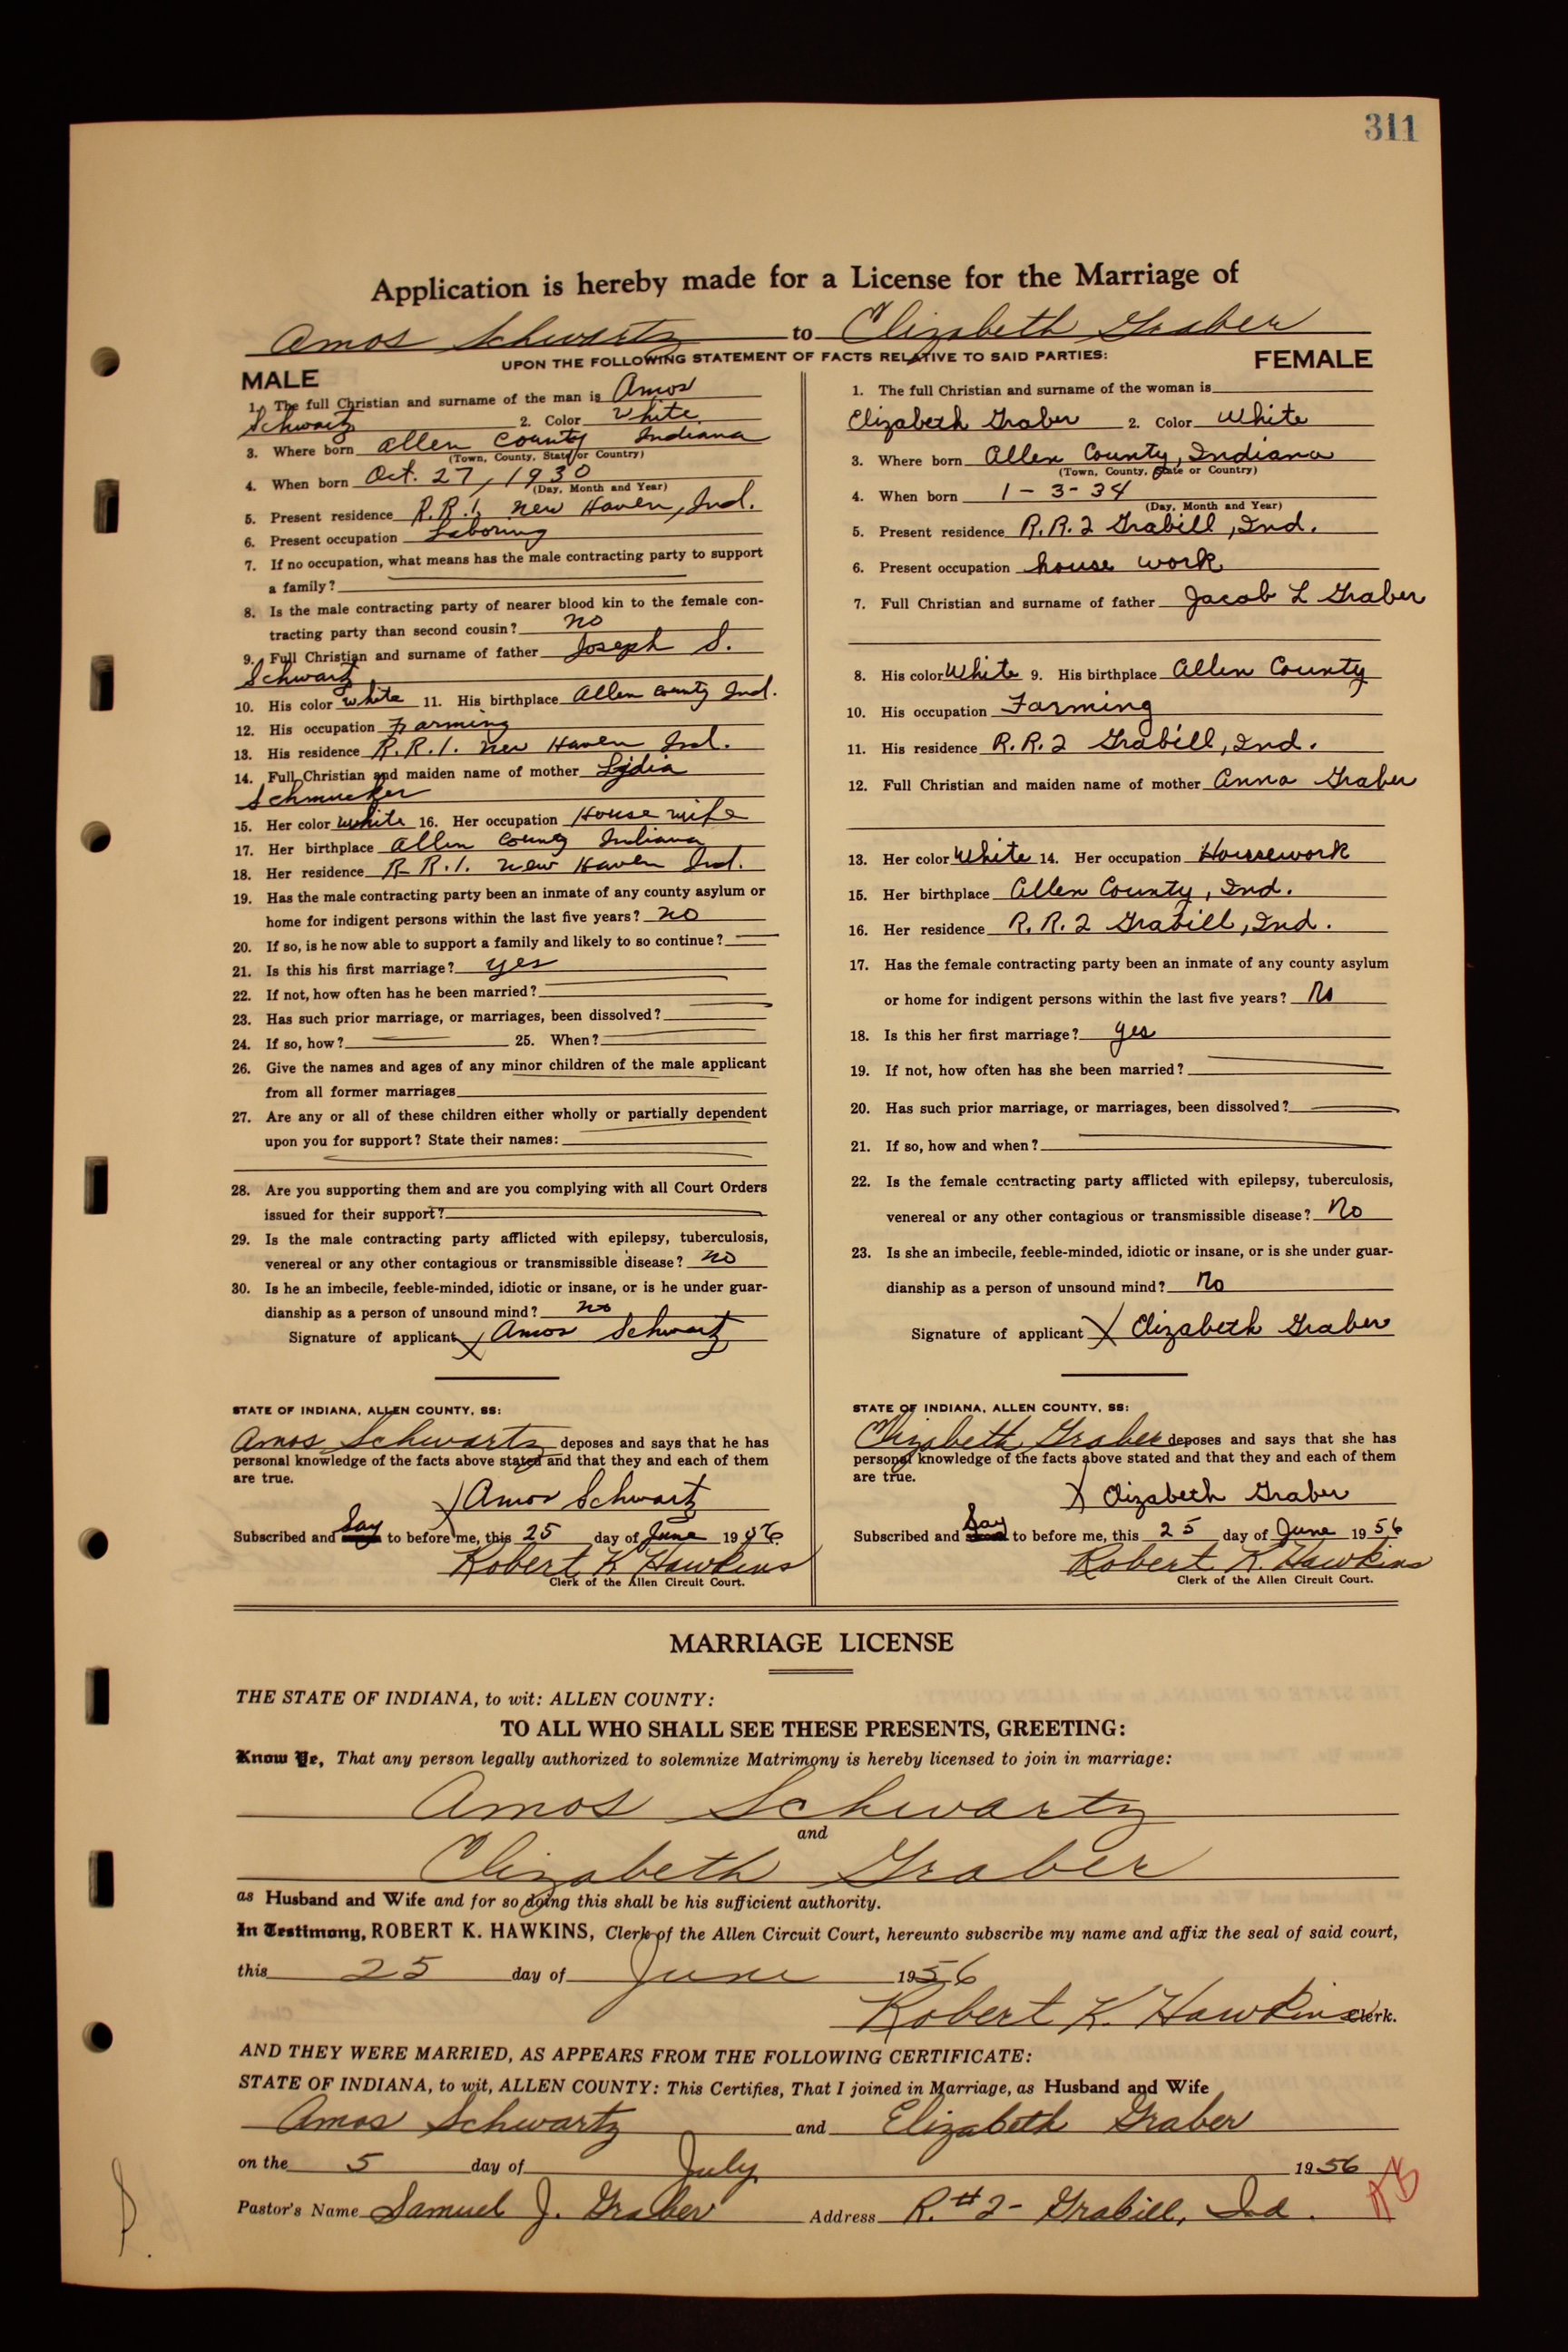 311
Application is hereby made for a License for the Marriage of
Amos Schwartz to Elizabeth Graber
UPON THE FOLLOWING STATEMENT OF FACTS RELATIVE TO SAID PARTIES:
MALE
1. The full Christian and surname of the man is Amos
Schwartz 2. Color White
3. Where born Allen County Indiana
(Town, County, State or Country)
4. When born Oct. 27, 1930
(Day, Month and Year)
5. Present residence R.R.1. New Haven, Ind.
6. Present occupation Laboring
7. If no occupation, what means has the male contracting party to support
a family?
8. Is the male contracting party of nearer blood kin to the female con-
tracting party than second cousin? no
9. Full Christian and surname of father Joseph S.
Schwartz
10. His color White 11. His birthplace Allen County Ind.
12. His occupation Farming
13. His residence R.R.1. New Haven Ind.
14. Full Christian and maiden name of mother Lydia
Schmucker
15. Her color White 16. Her occupation House wife
17. Her birthplace Allen County Indiana
18. Her residence R.R.1. New Haven Ind.
19. Has the male contracting party been an inmate of any county asylum or
home for indigent persons within the last five years? no
20. If so, is he now able to support a family and likely to so continue?
21. Is this his first marriage? yes
22. If not, how often has he been married?
23. Has such prior marriage, or marriages, been dissolved?
24. If so, how? 25. When?
26. Give the names and ages of any minor children of the male applicant
from all former marriages
27. Are any or all of these children either wholly or partially dependent
upon you for support? State their names:
28. Are you supporting them and are you complying with all Court Orders
issued for their support?
29. Is the male contracting party afflicted with epilepsy, tuberculosis,
venereal or any other contagious or transmissible disease? no
30. Is he an imbecile, feeble-minded, idiotic or insane, or is he under guar-
dianship as a person of unsound mind? no
Signature of applicant X Amos Schwartz
STATE OF INDIANA, ALLEN COUNTY, SS:
Amos Schwartz deposes and says that he has
personal knowledge of the facts above stated and that they and each of them
are true.
X Amos Schwartz
Subscribed and Say to before me, this 25 day of June 1956
Robert K Hawkins
Clerk of the Allen Circuit Court.
FEMALE
1. The full Christian and surname of the woman is
Elizabeth Graber 2. Color White
3. Where born Allen County, Indiana
(Town, County, State or Country)
4. When born 1-3-34
(Day, Month and Year)
5. Present residence R.R.2 Grabill, Ind.
6. Present occupation house work
7. Full Christian and surname of father Jacob L Graber
8. His color White 9. His birthplace Allen County
10. His occupation Farming
11. His residence R.R.2 Grabill, Ind.
12. Full Christian and maiden name of mother Anna Graber
13. Her color White 14. Her occupation Housework
15. Her birthplace Allen County, Ind.
16. Her residence R.R.2 Grabill, Ind.
17. Has the female contracting party been an inmate of any county asylum
or home for indigent persons within the last five years? No
18. Is this her first marriage? yes
19. If not, how often has she been married?
20. Has such prior marriage, or marriages, been dissolved?
21. If so, how and when?
22. Is the female contracting party afflicted with epilepsy, tuberculosis,
venereal or any other contagious or transmissible disease? No
23. Is she an imbecile, feeble-minded, idiotic or insane, or is she under guar-
dianship as a person of unsound mind? No
Signature of applicant X Elizabeth Graber
STATE OF INDIANA, ALLEN COUNTY, SS:
Elizabeth Graber deposes and says that she has
personal knowledge of the facts above stated and that they and each of them
are true.
X Elizabeth Graber
Subscribed and Say to before me, this 25 day of June 1956
Robert K. Hawkins
Clerk of the Allen Circuit Court.
MARRIAGE LICENSE
THE STATE OF INDIANA, to wit: ALLEN COUNTY:
TO ALL WHO SHALL SEE THESE PRESENTS, GREETING:
Know Ye, That any person legally authorized to solemnize Matrimony is hereby licensed to join in marriage:
Amos Schwartz
and
Elizabeth Graber
as Husband and Wife and for so doing this shall be his sufficient authority.
In Testimony, ROBERT K. HAWKINS, Clerk of the Allen Circuit Court, hereunto subscribe my name and affix the seal of said court,
this 25 day of June 1956
Robert K. Hawkins Clerk.
AND THEY WERE MARRIED, AS APPEARS FROM THE FOLLOWING CERTIFICATE:
STATE OF INDIANA, to wit, ALLEN COUNTY: This Certifies, That I joined in Marriage, as Husband and Wife
Amos Schwartz and Elizabeth Graber
on the 5 day of July 1956
Pastor's Name Samuel J. Graber Address R.#2- Grabill, Ind.